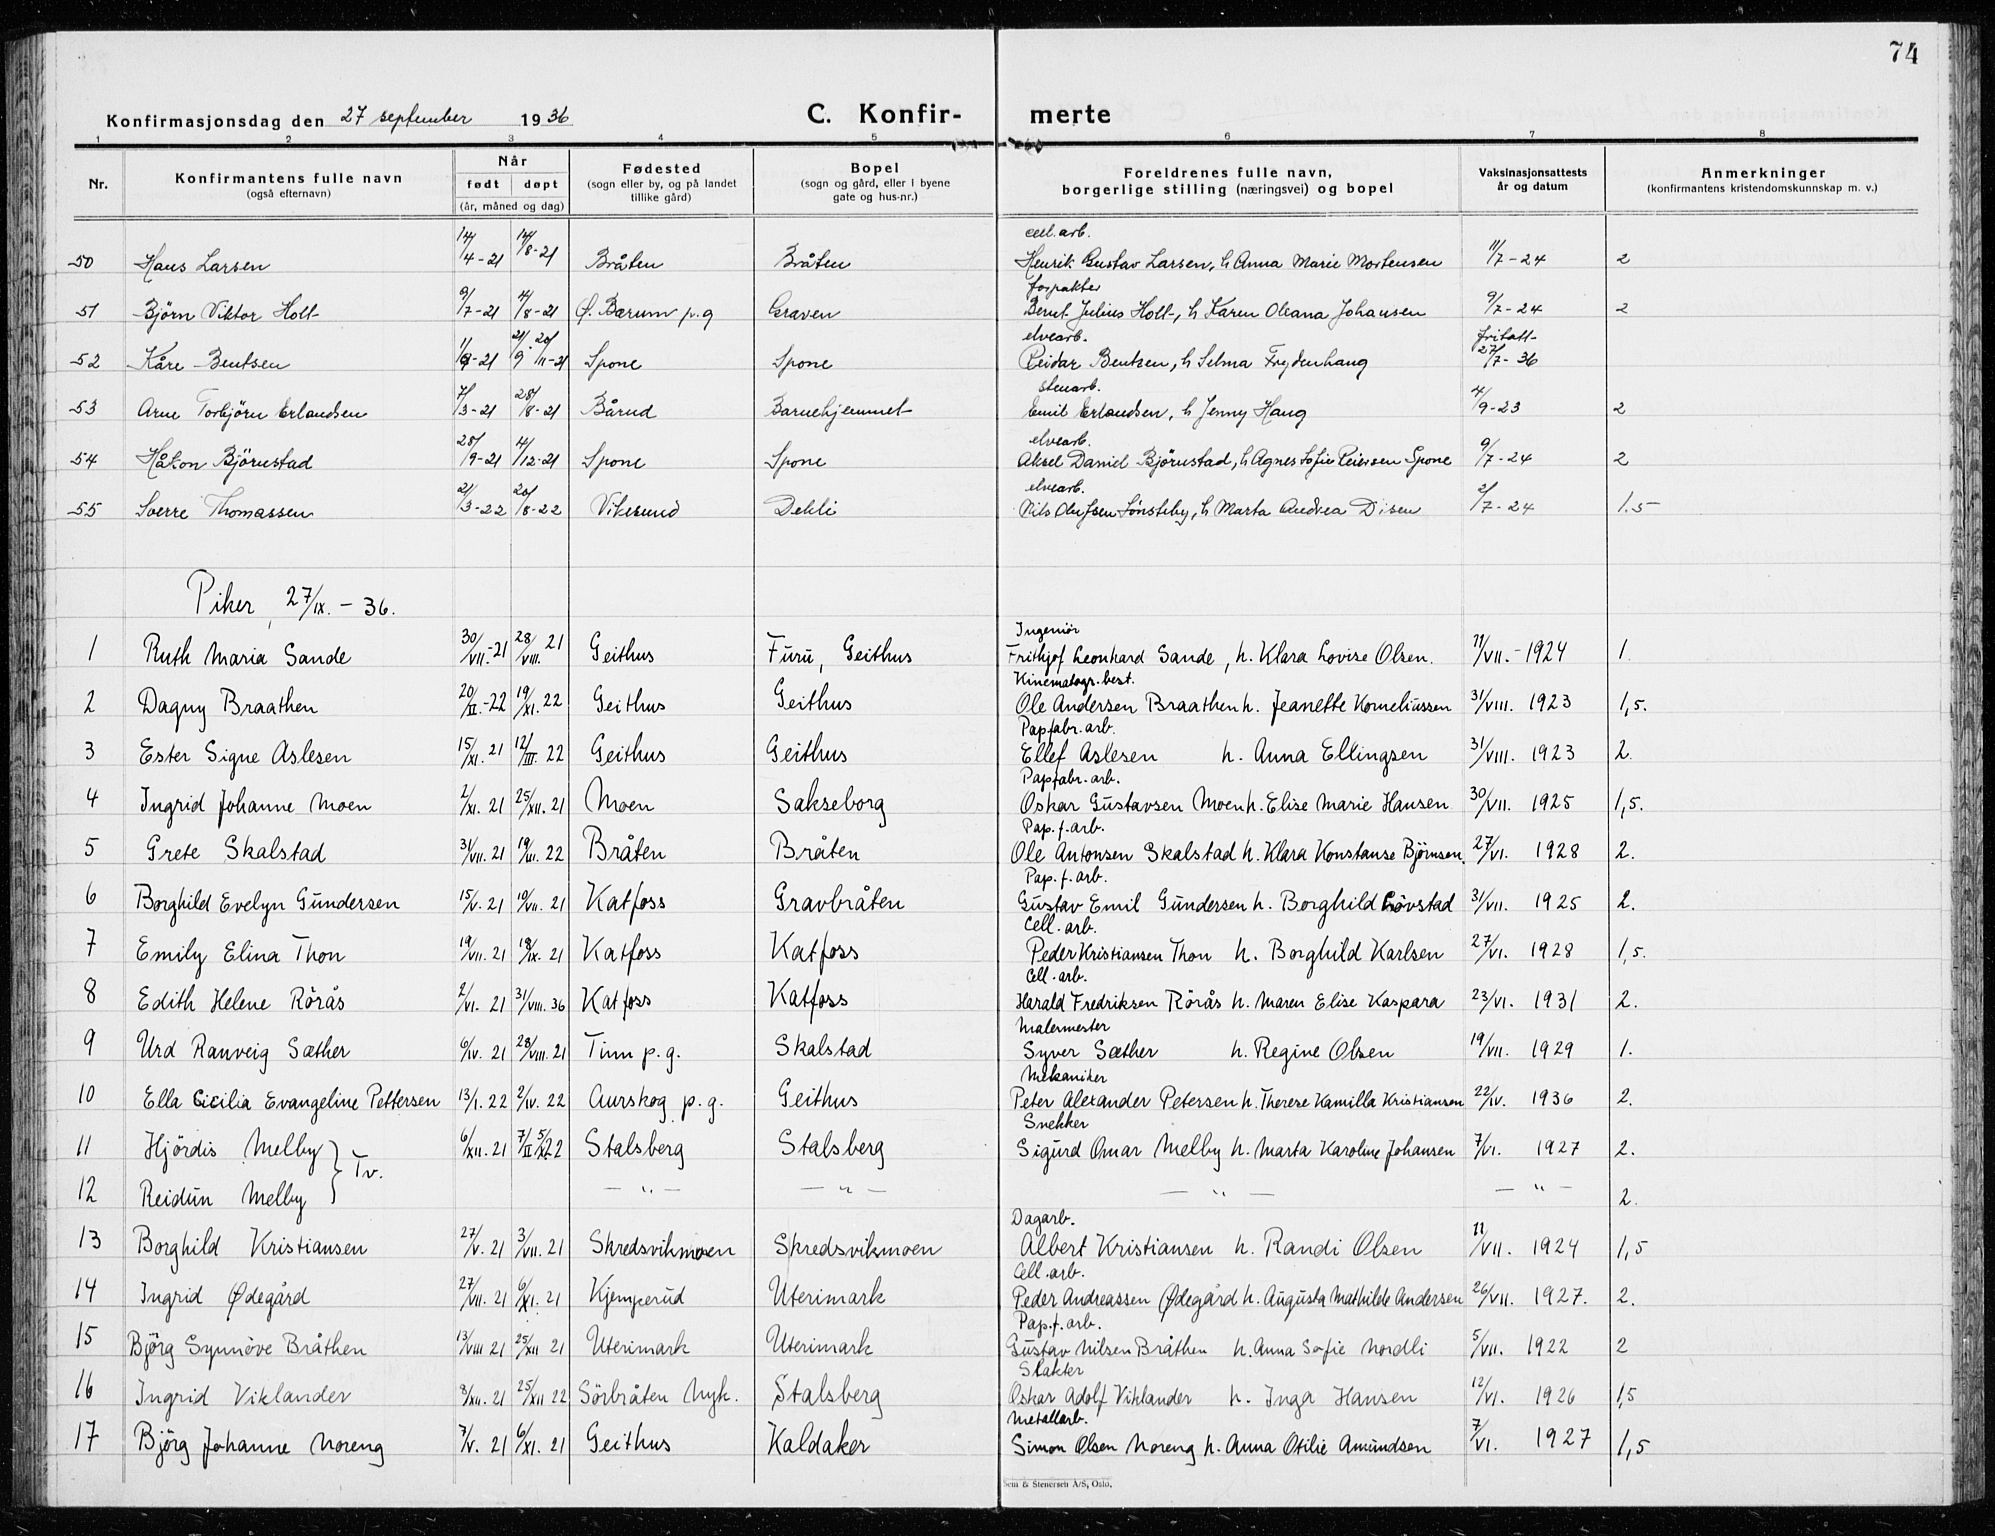 74
Konfirmasjonsdag den 27 september 1936 C. Konfir- merte
1 2 3 4 5 6 7 8
Nr. Konfirmantens fulle navn (også efternavn) Når født døpt (år, måned og dag) Fødested (sogn eller by, og på landet tillike gård) Bopel (sogn og gård, eller i byene gate og hus-nr.) Foreldrenes fulle navn, borgerlige stilling (næringsvei) og bopel Vaksinasjonsattests år og datum Anmerkninger (konfirmantens kristendomskunnskap m. v.)
cell.arb.
50 Hans Larsen 14/4-21 14/8-21 Bråten Bråten Henrik Gustav Larsen, h Anna Marie Mortensen 11/7-24 2
forpakter
51 Björn Viktor Holt 9/7-21 4/8-21 Ø. Bærum p.g Graven Bernt Julius Holt, h Karen Oleana Johansen 9/7-24 2
elvearb. fritatt
52 Kåre Bentsen Spone Spone Reidar Bentsen, h Selma Frydenhaug 27/7-36
stenarb.
53 Arne Torbjörn Erlandsen 7/3-21 28/8-21 Bårud Barnehjemmet Emil Erlandsen, h Jenny Haug 4/9-23 2
elvearb.
54 Håkon Björnstad 28/9-21 4/12-21 Spone Spone Aksel Daniel Björnstad, h Agnes Sofie Reiersen Spone 9/7-24 2
elvearb.
55 Sverre Thomassen 21/3-22 20/8-22 Vikesund Dehli Nils Olufsen Sønsteby, h Marta Andrea Disen 2/7-24 1.5
Piker, 27/IX. - 36.
Ingeniör
1 Ruth Maria Sande 30/VII.-21 28/VIII. 21 Geithus Furu, Geithus Frithjof Leonhard Sande, h. Klara Lovise Olsen. 11/VII.-1924 1.
Kinematogr.best.
2 Dagny Braathen 20/II.-22 19/XI. 22 Geithus Geithus Ole Andersen Braathen h. Jeanette Korneliussen 31/VIII. 1923 1,5.
Papfabr.arb.
3 Ester Signe Aslesen 15/XI. 21 12/III. 22 Geithus Geithus Ellef Aslesen h. Anna Ellingsen 31/VIII. 1923 2.
Papfabr.arb.
4 Ingrid Johanne Moen 2/XI. 21 25/XII. 21 Moen Sakseborg Oskar Gustavsen Moen h. Elise Marie Hansen 30/VII. 1925 1,5.
Pap.f.arb.
5 Grete Skalstad 31/VII. 21 19/III. 22 Bråten Bråten Ole Antonsen Skalstad h. Klara Konstanse Björnsen. 27/VI. 1928 2.
Pap.f.arb.
6 Borghild Evelyn Gundersen 15/V. 21 10/VII. 21 Katfoss Gravbråten Gustav Emil Gundersen h. Borghild Lövstad 31/VII. 1925 2.
Cell.arb.
7 Emily Elina Thon 19/VII. 21 18/IX. 21 Katfoss Katfoss Peder Kristiansen Thon h. Borghild Karlsen 27/VI. 1928 1,5.
Cell.arb.
8 Edith Helene Rörås 2/VI. 21 31/VIII. 36 Katfoss Katfoss Harald Fredriksen Rörås h. Maren Elise Kaspara 23/VI. 1931 2.
Malermester
9 Urd Ranveig Sæther 6/IV. 21 28/VIII. 21 Tinn p.g. Skalstad Syver Sæther h. Regine Olsen 19/VII. 1929 1.
Mekaniker
10 Ella Cicilia Evangeline Pettersen 13/I. 22 2/IV. 22 Aurskog p.g. Geithus Peter Alexander Petersen h. Therese Kamilla Kristiansen 22/IV. 1936 2.
Snekker
11 Hjördis Melby } Tv. 6/XII. 21 Stalsberg Stalsberg Sigurd Omar Melby h. Marta Karoline Johansen 7/VI. 1927 2.
12 Reidun Melby — " — — " — — " — — " — 2.
Dagarb.
13 Borghild Kristiansen 27/V. 21 3/VII. 21 Skredsvikmoen Skredsvikmoen Albert Kristiansen h. Randi Olsen 11/VII. 1924 1,5
Cell.arb.
14 Ingrid Ødegård 27/VII. 21 6/XI. 21 Kjemperud Uterimark Peder Andreassen Ødegård h. Augusta Mathilde Andersen 26/VII. 1927. 2.
Pap.f.arb.
15 Björg Synnöve Bråthen 13/VIII 21 25/XII 21 Uterimark Uterimark Gustav Nilsen Bråthen h. Anna Sofie Nordli 5/VII. 1922 2
Slakter
16 Ingrid Viklander 8/XII. 21 25/XII 22 Sörbråten Nyk. Stalsberg Oskar Adolf Viklander h. Inga Hansen 12/VI. 1926 1,5
Metallarb.
17 Björg Johanne Noreng 7/V. 21 6/XI. 21 Geithus Kaldaker Simon Olsen Noreng h. Anna Otilie Amundsen 7/VI. 1927 1,5
Sem & Stenersen A/S, Oslo.